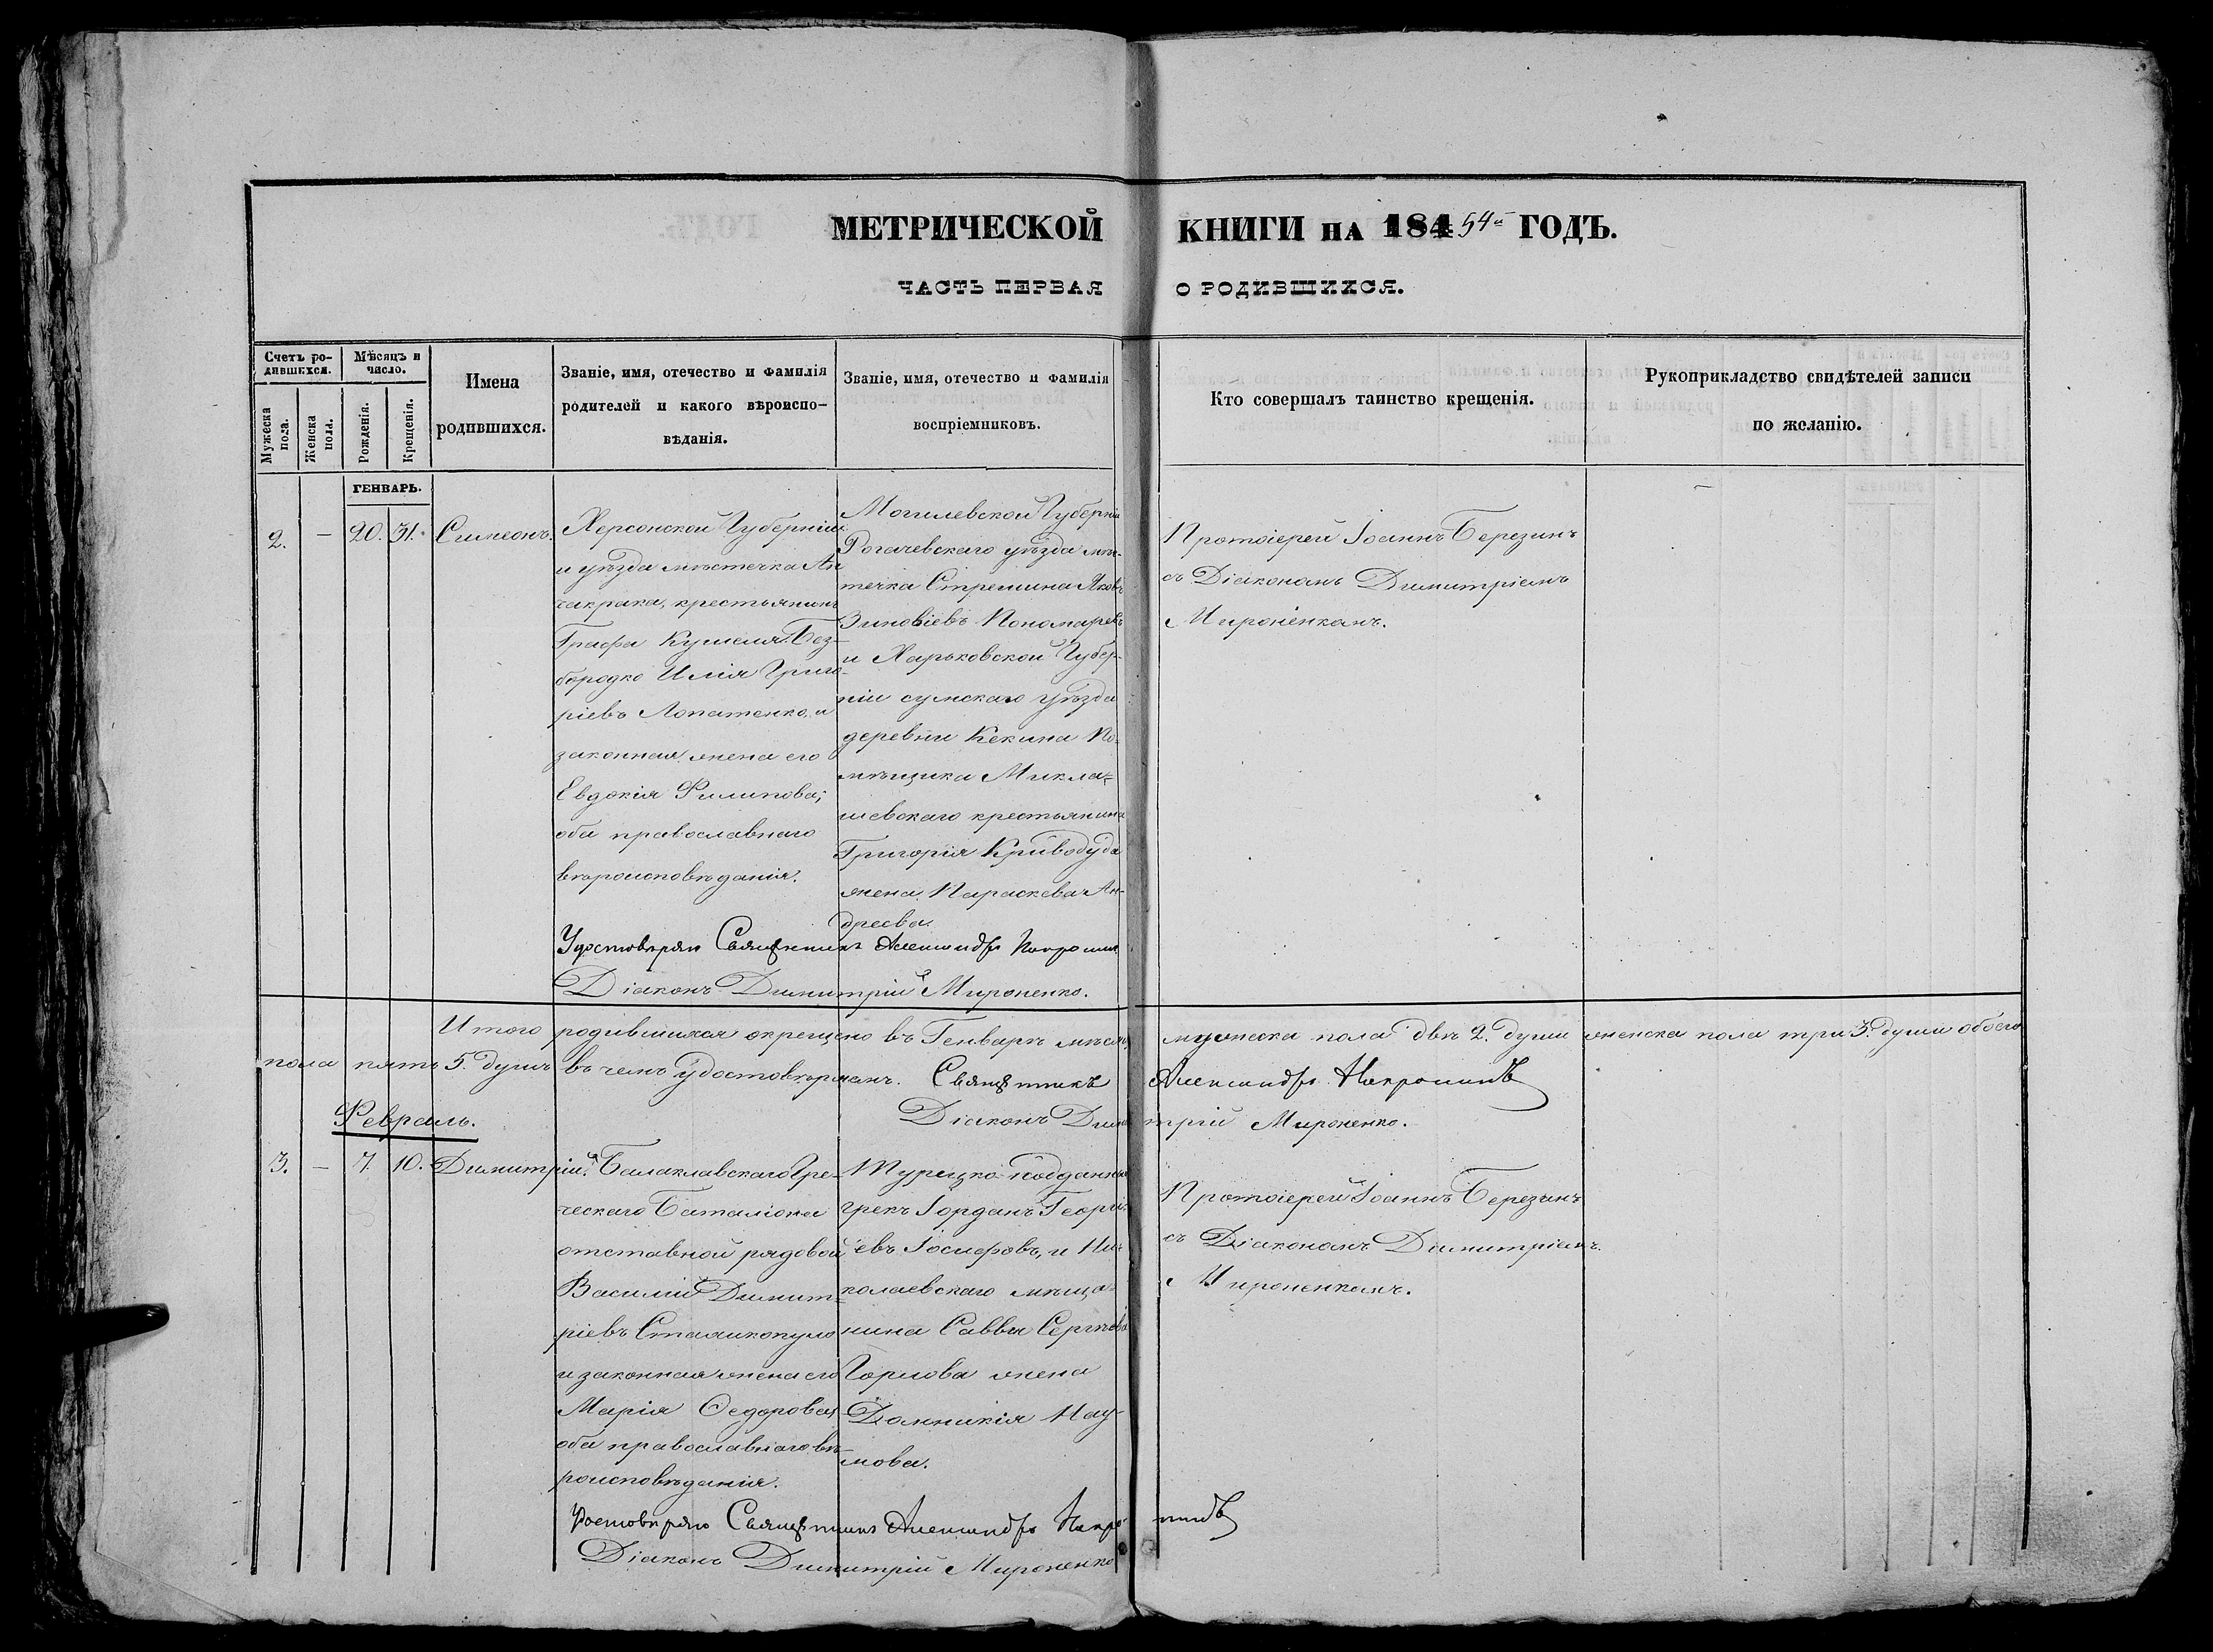 МЕТРИЧЕСКОЙ КНИГИ НА 184 54й ГОДЪ.
ЧАСТЬ ПЕРВАЯ О РОДИВШИХСЯ.
Счетъ ро-
дившихся.
Мужеска пола.
Женска пола.
Мѣсяцъ и
число.
Рожденія.
Крещенія.
Имена
родившихся.
Званіе, имя, отечество и фамилія
родителей и какого вѣроиспо-
вѣданія.
Званіе, имя, отечество и фамилія
воспріемниковъ.
Кто совершалъ таинство крещенія.
Рукоприкладство свидѣтелей записи
по желанію.
ГЕНВАРЬ.
2. — 20. 31. Симеонъ.
Херсонской Губерніи
и уѣзда мѣстечка Ан
чакрака, крестьянинъ
Графа Кушеля-Без-
бородко Илія Григо-
ріевъ Лопатенко, и
законная жена его
Евдокія Филипова;
оба православнаго
вѣроисповѣданія.
Могилевской Губерніи
Рогачевскаго уѣзда мѣс-
течка Стрешина Яковъ
Зиновіевъ Пономаревъ
и Харьковской Губер-
ніи сумскаго уѣзда
деревни Кекина По-
мѣщика Микла-
шевскаго крестьянина
Григорія Криводуда
жена Параскева Ан-
дреева.
Протоіерей Іоаннъ Березинъ
съ Діакономъ Димитріемъ
Мироненкомъ.
Удостовѣряю Священникъ Александръ
Діаконъ Димитрій Мироненко.
Итого родившихся окрещено въ Генварѣ мѣсяцѣ мужеска пола двѣ 2. души женска пола три 3. души обоего
пола пять 5. душъ въ чемъ удостовѣряемъ. Священникъ Александръ
Діаконъ Димитрій Мироненко.
Февраль.
3. — 7. 10. Димитрій.
Балаклавскаго Гре-
ческаго Баталіона
отставной рядовой
Василій Димит-
ріевъ Стамикопуло
и законная жена его
Марія Ѳедорова,
оба православнаго вѣ-
роисповѣданія.
Турецко-подданный
грекъ Іорданъ Георгі-
евъ Іосифовъ, и Ни-
колаевскаго мѣща-
нина Саввы Сергѣева
Горлова жена
Домникія Нау-
мова.
Протоіерей Іоаннъ Березинъ
съ Діакономъ Димитріемъ
Мироненкомъ.
Удостовѣряю Священникъ Александръ
Діаконъ Димитрій Мироненко